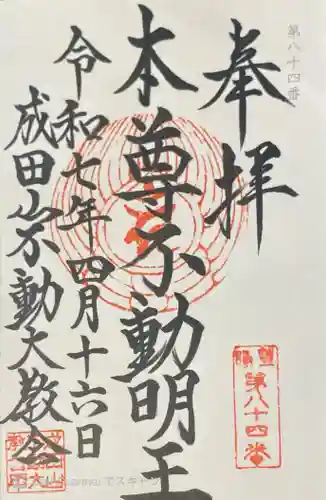 第八十四番
奉拝
本尊不動明王
令和七年四月十六日
成田山不動大教会
第八十四番
でスキャン